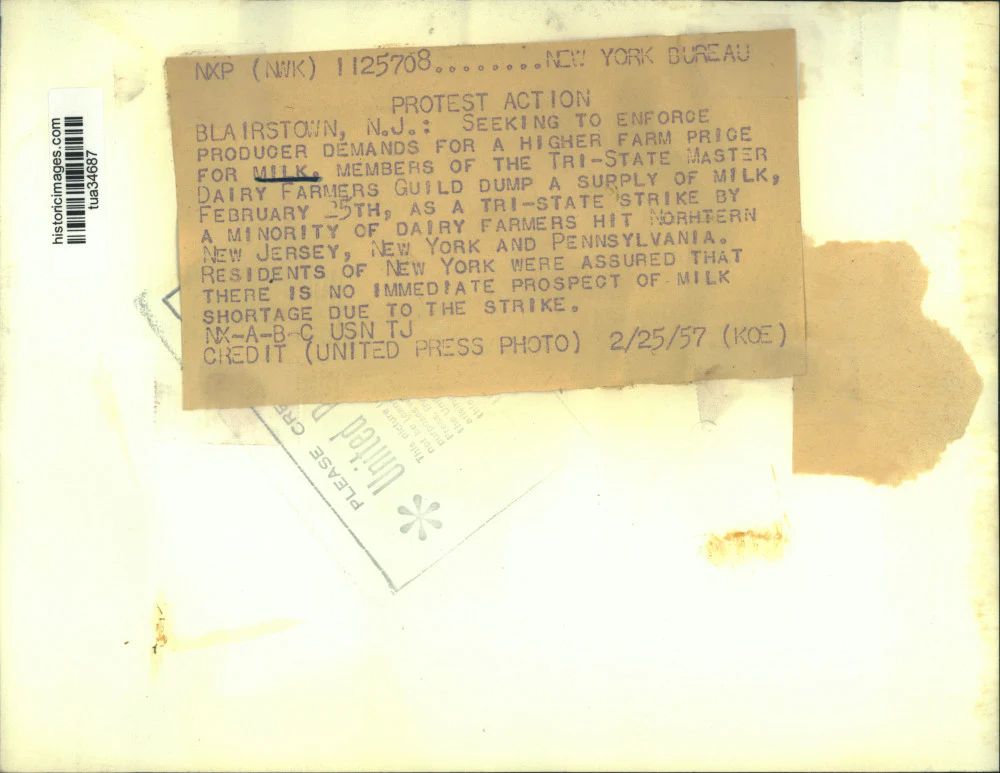 NXP (NWK) 1125708.........NEW YORK BUREAU
PROTEST ACTION
BLAIRSTOWN, N.J.: SEEKING TO ENFORCE
PRODUCER DEMANDS FOR A HIGHER FARM PRICE
FOR MILK, MEMBERS OF THE TRI-STATE MASTER
DAIRY FARMERS GUILD DUMP A SUPPLY OF MILK,
FEBRUARY 25TH, AS A TRI-STATE STRIKE BY
A MINORITY OF DAIRY FARMERS HIT NORHTERN
NEW JERSEY, NEW YORK AND PENNSYLVANIA.
RESIDENTS OF NEW YORK WERE ASSURED THAT
THERE IS NO IMMEDIATE PROSPECT OF MILK
SHORTAGE DUE TO THE STRIKE.
NX-A-B-C USN TJ
CREDIT (UNITED PRESS PHOTO) 2/25/57 (KOE)
historicimages.com
tua34687
PLEASE CRE
United P
This picture
not be